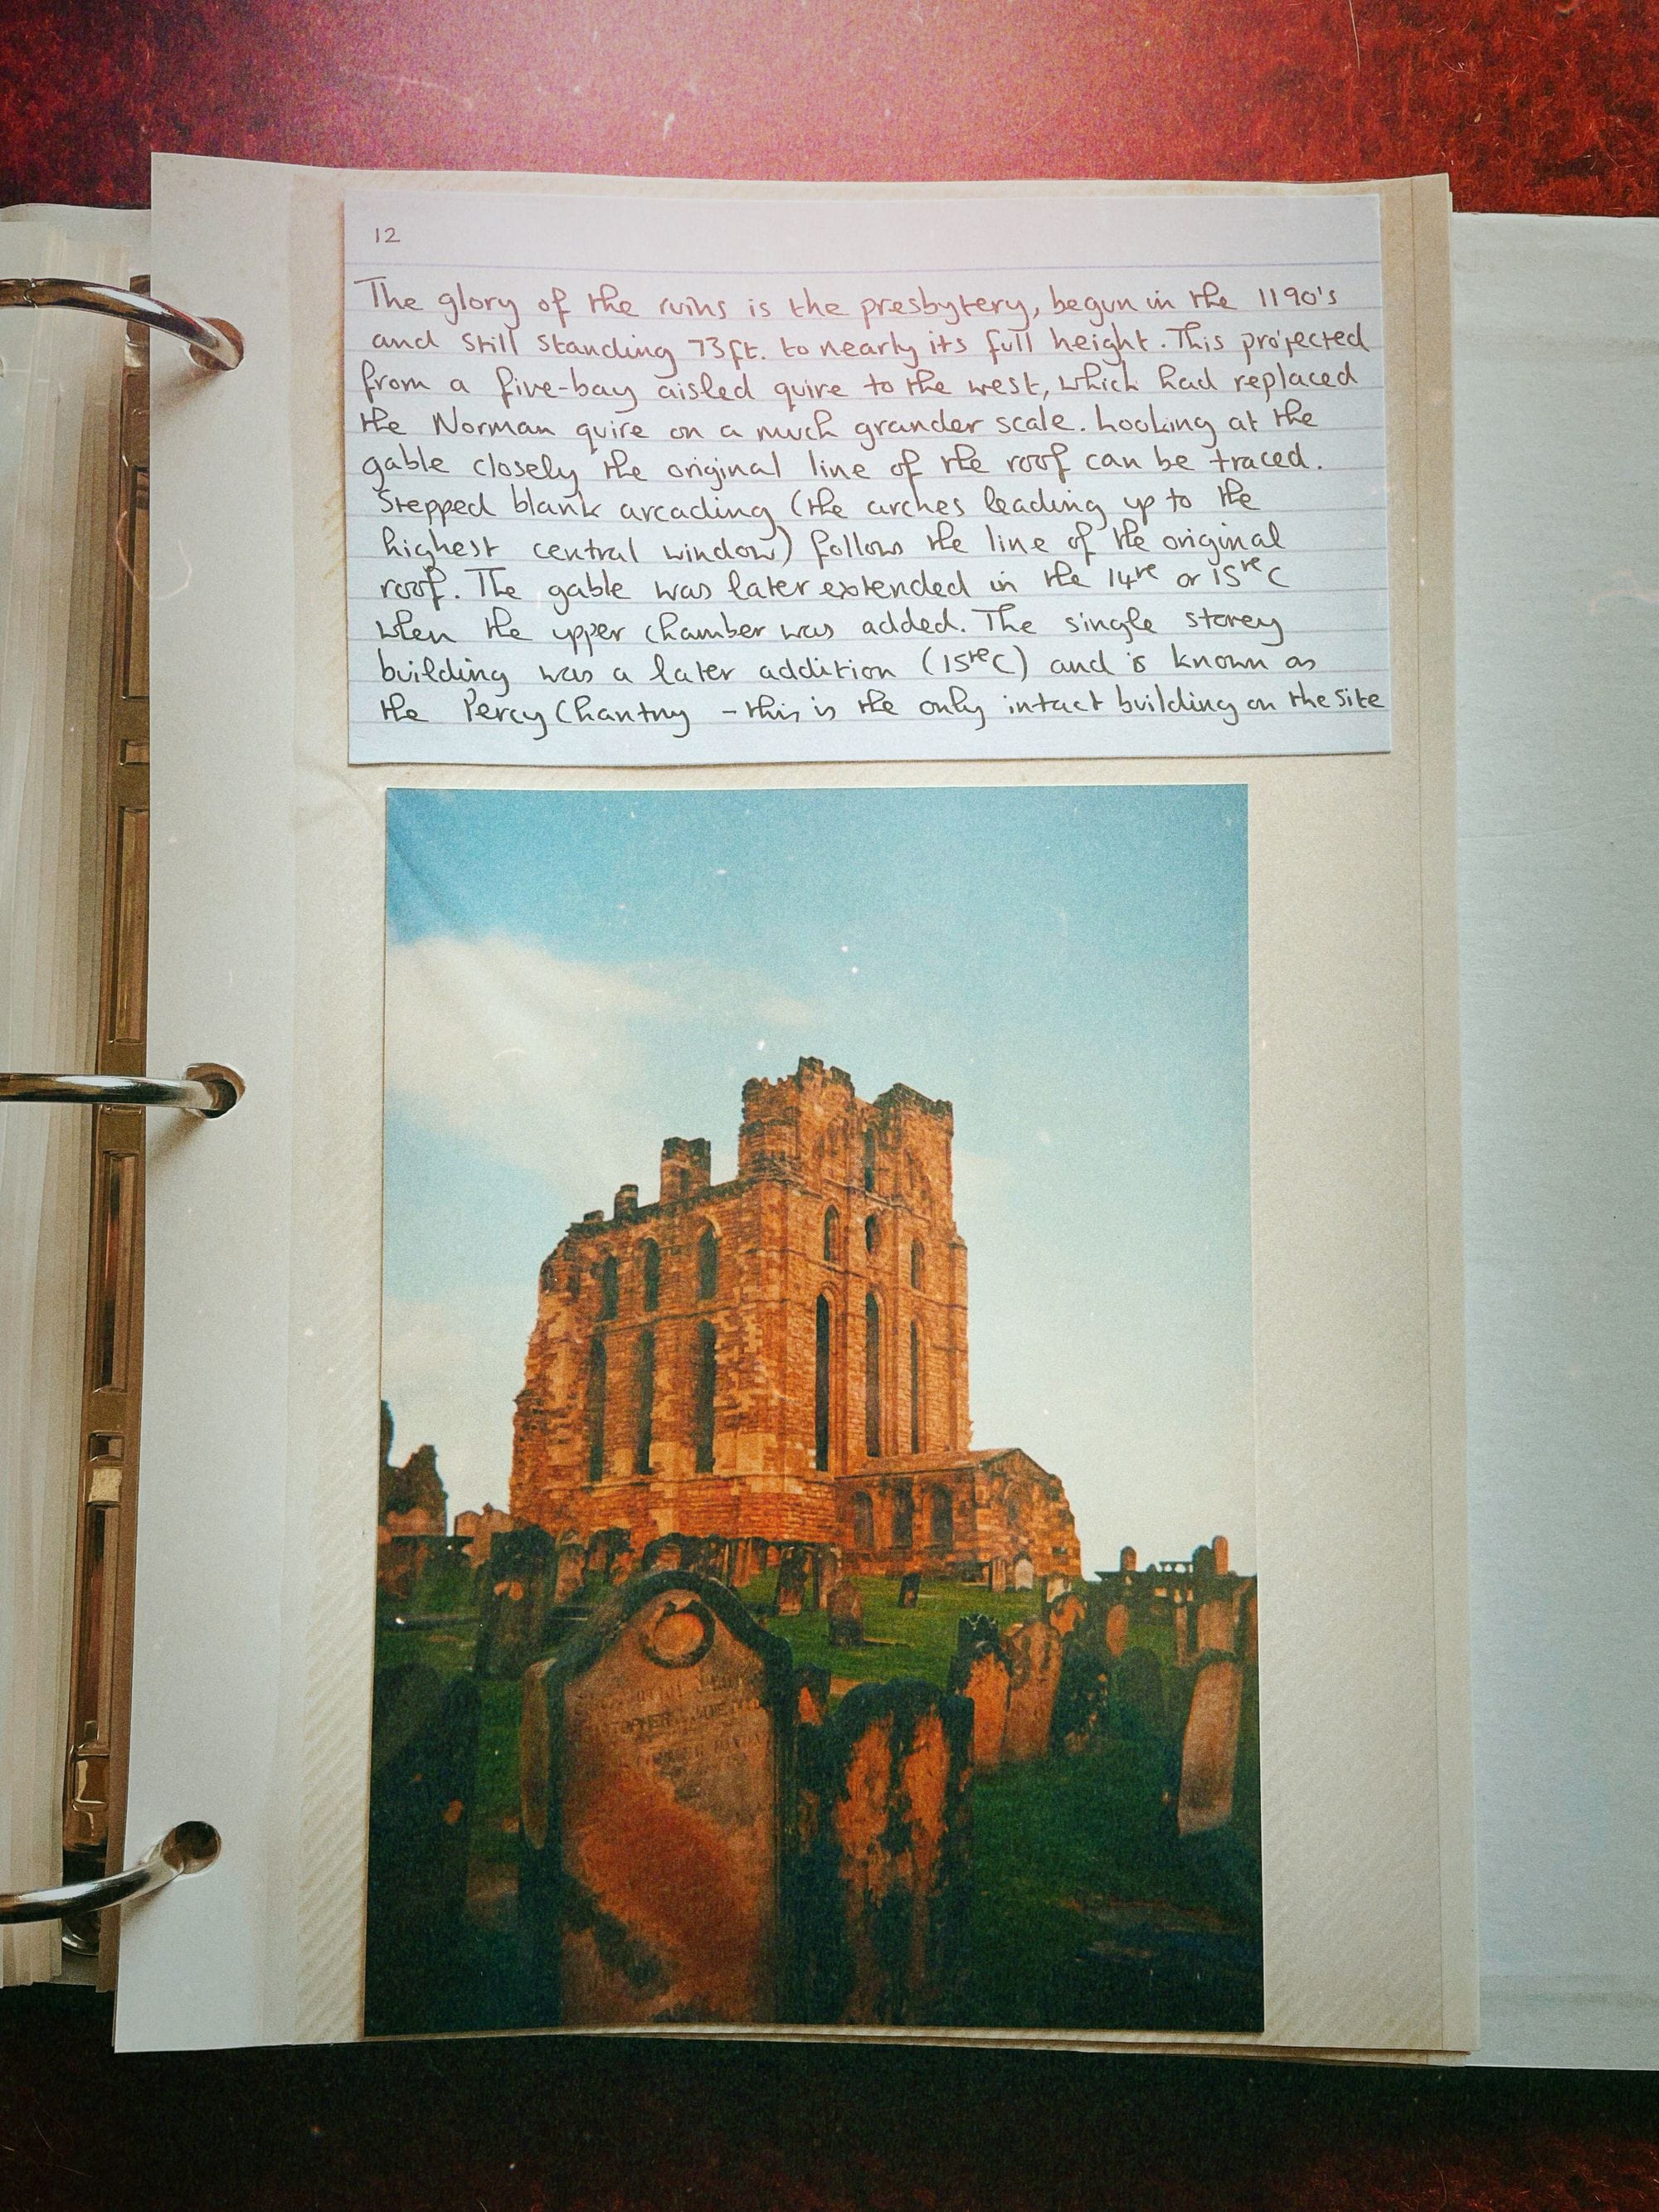 12
The glory of the ruins is the presbytery, begun in the 1190's
and still standing 73ft. to nearly its full height. This projected
from a five-bay aisled quire to the west, which had replaced
the Norman quire on a much grander scale. Looking at the
gable closely the original line of the roof can be traced.
Stepped blank arcading (the arches leading up to the
highest central window) follows the line of the original
roof. The gable was later extended in the 14th or 15th C
when the upper chamber was added. The single storey
building was a later addition (15th C) and is known as
the Percy Chantry - this is the only intact building on the site